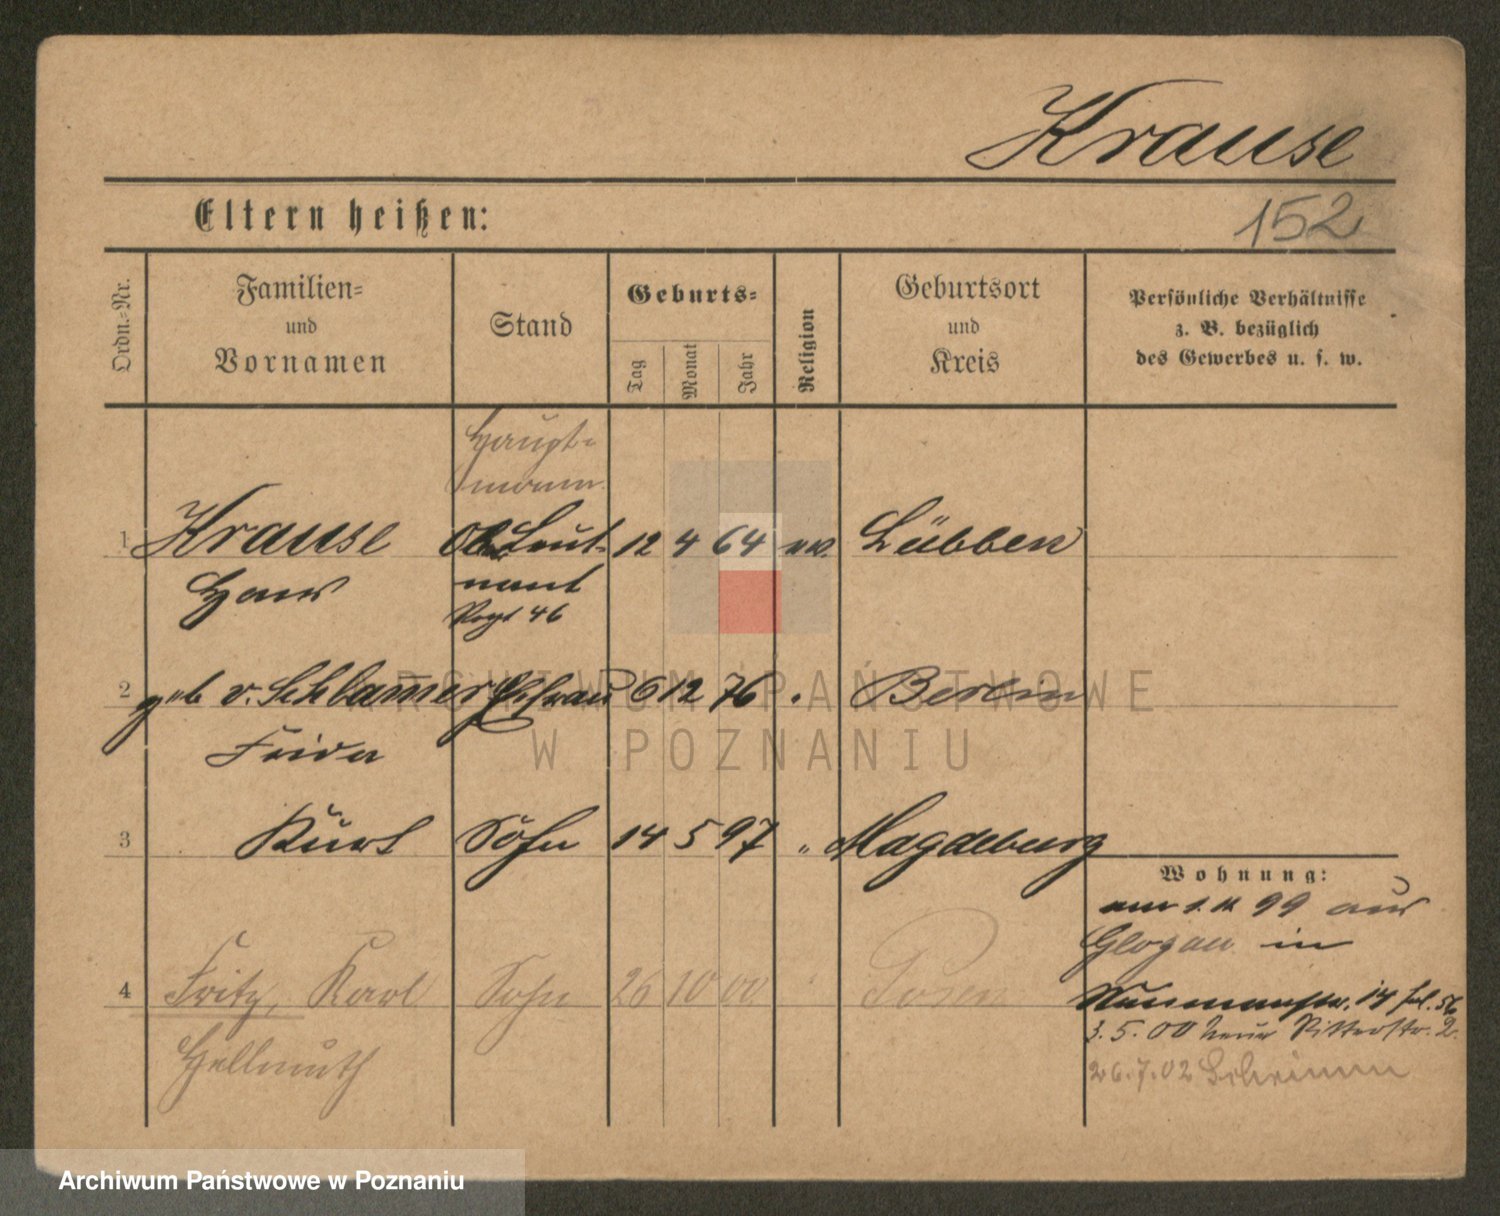 Krause
Eltern heißen:
152
Ordn.-Nr.
Familien-
und
Vornamen
Stand
Geburts-
Tag
Monat
Jahr
Religion
Geburtsort
und
Kreis
Persönliche Verhältnisse
z. B. bezüglich
des Gewerbes u. s. w.
Haupt-
mann
1 Krause Ob Leut- 12 4 64 ev. Lübben
Hans nant
Regt 46
2 geb v. Ehefrau 6 12 76 Berlin
Frida
3 Kurt Sohn 14 5 97 " Magdeburg
Wohnung:
am 1. 11 99 aus
Glogau in
4 Fritz, Karl Sohn 26 10 00 Posen
Hellmuth
Naumannstr. 14
3. 5. 00 neue Ritterstr. 2.
26.7.02 Schrimm
ARCHIWUM PAŃSTWOWE
W POZNANIU
Archiwum Państwowe w Poznaniu